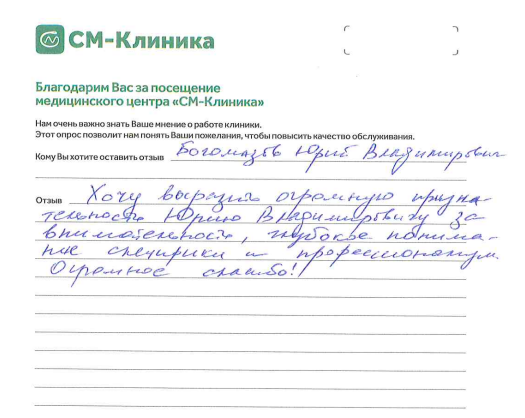 СМ-Клиника
Благодарим Вас за посещение
медицинского центра «СМ-Клиника»
Нам очень важно знать Ваше мнение о работе клиники.
Этот опрос позволит нам понять Ваши пожелания, чтобы повысить качество обслуживания.
Кому Вы хотите оставить отзыв Богомазов Юрий Владимирович
Отзыв Хочу выразить огромную призна-
тельность Юрию Владимировичу за
внимательность, глубокое понима-
ние специфики и профессионализм.
Огромное спасибо!